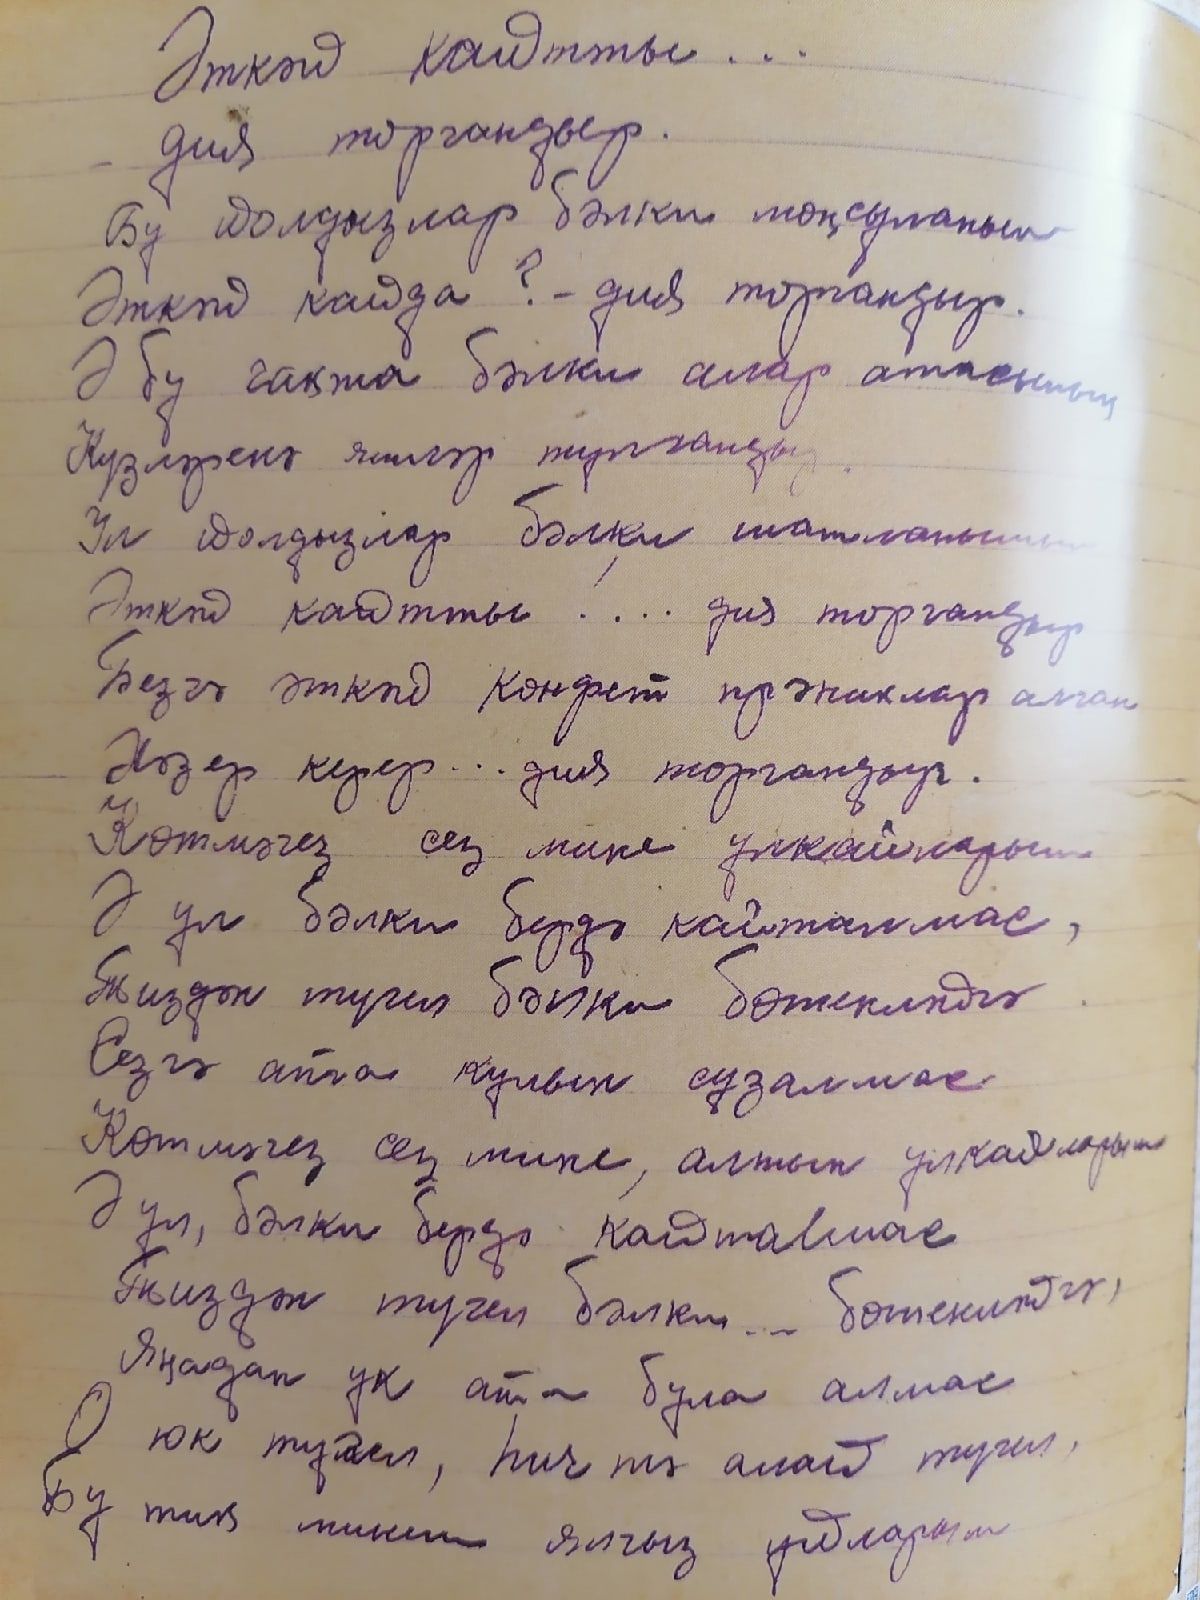 Әткәй кайтты...
- дия торгандыр.
Бу йолдызлар бәлки моңсуланып
Әткәй кайда? - дия торгандыр.
Ә бу чакта бәлки алар атасының
Күзләренә яшләр тулгандыр.
Ул йолдызлар бәлки шатланышып
Әткәй кайтты!.... дия торгандыр
Безгә әткәй конфет прәникләр алган
Хәзер керер... дия торгандыр.
Көтмәгез сез мине улкайларым
Ә ул бәлки бердә кайталмас,
Тиздән түгел бәлки бөтенләйгә
Сезгә ата кулын сузалмас
Көтмәгез сез мине, алтын улкайларым
Ә ул, бәлки бердә кайталмас
Тиздән түгел бәлки... бөтенләйгә,
Яңадан ук ата була алмас
О юк түгел, һич тә алай түгел,
Бу тик минем ялгыз уйларым